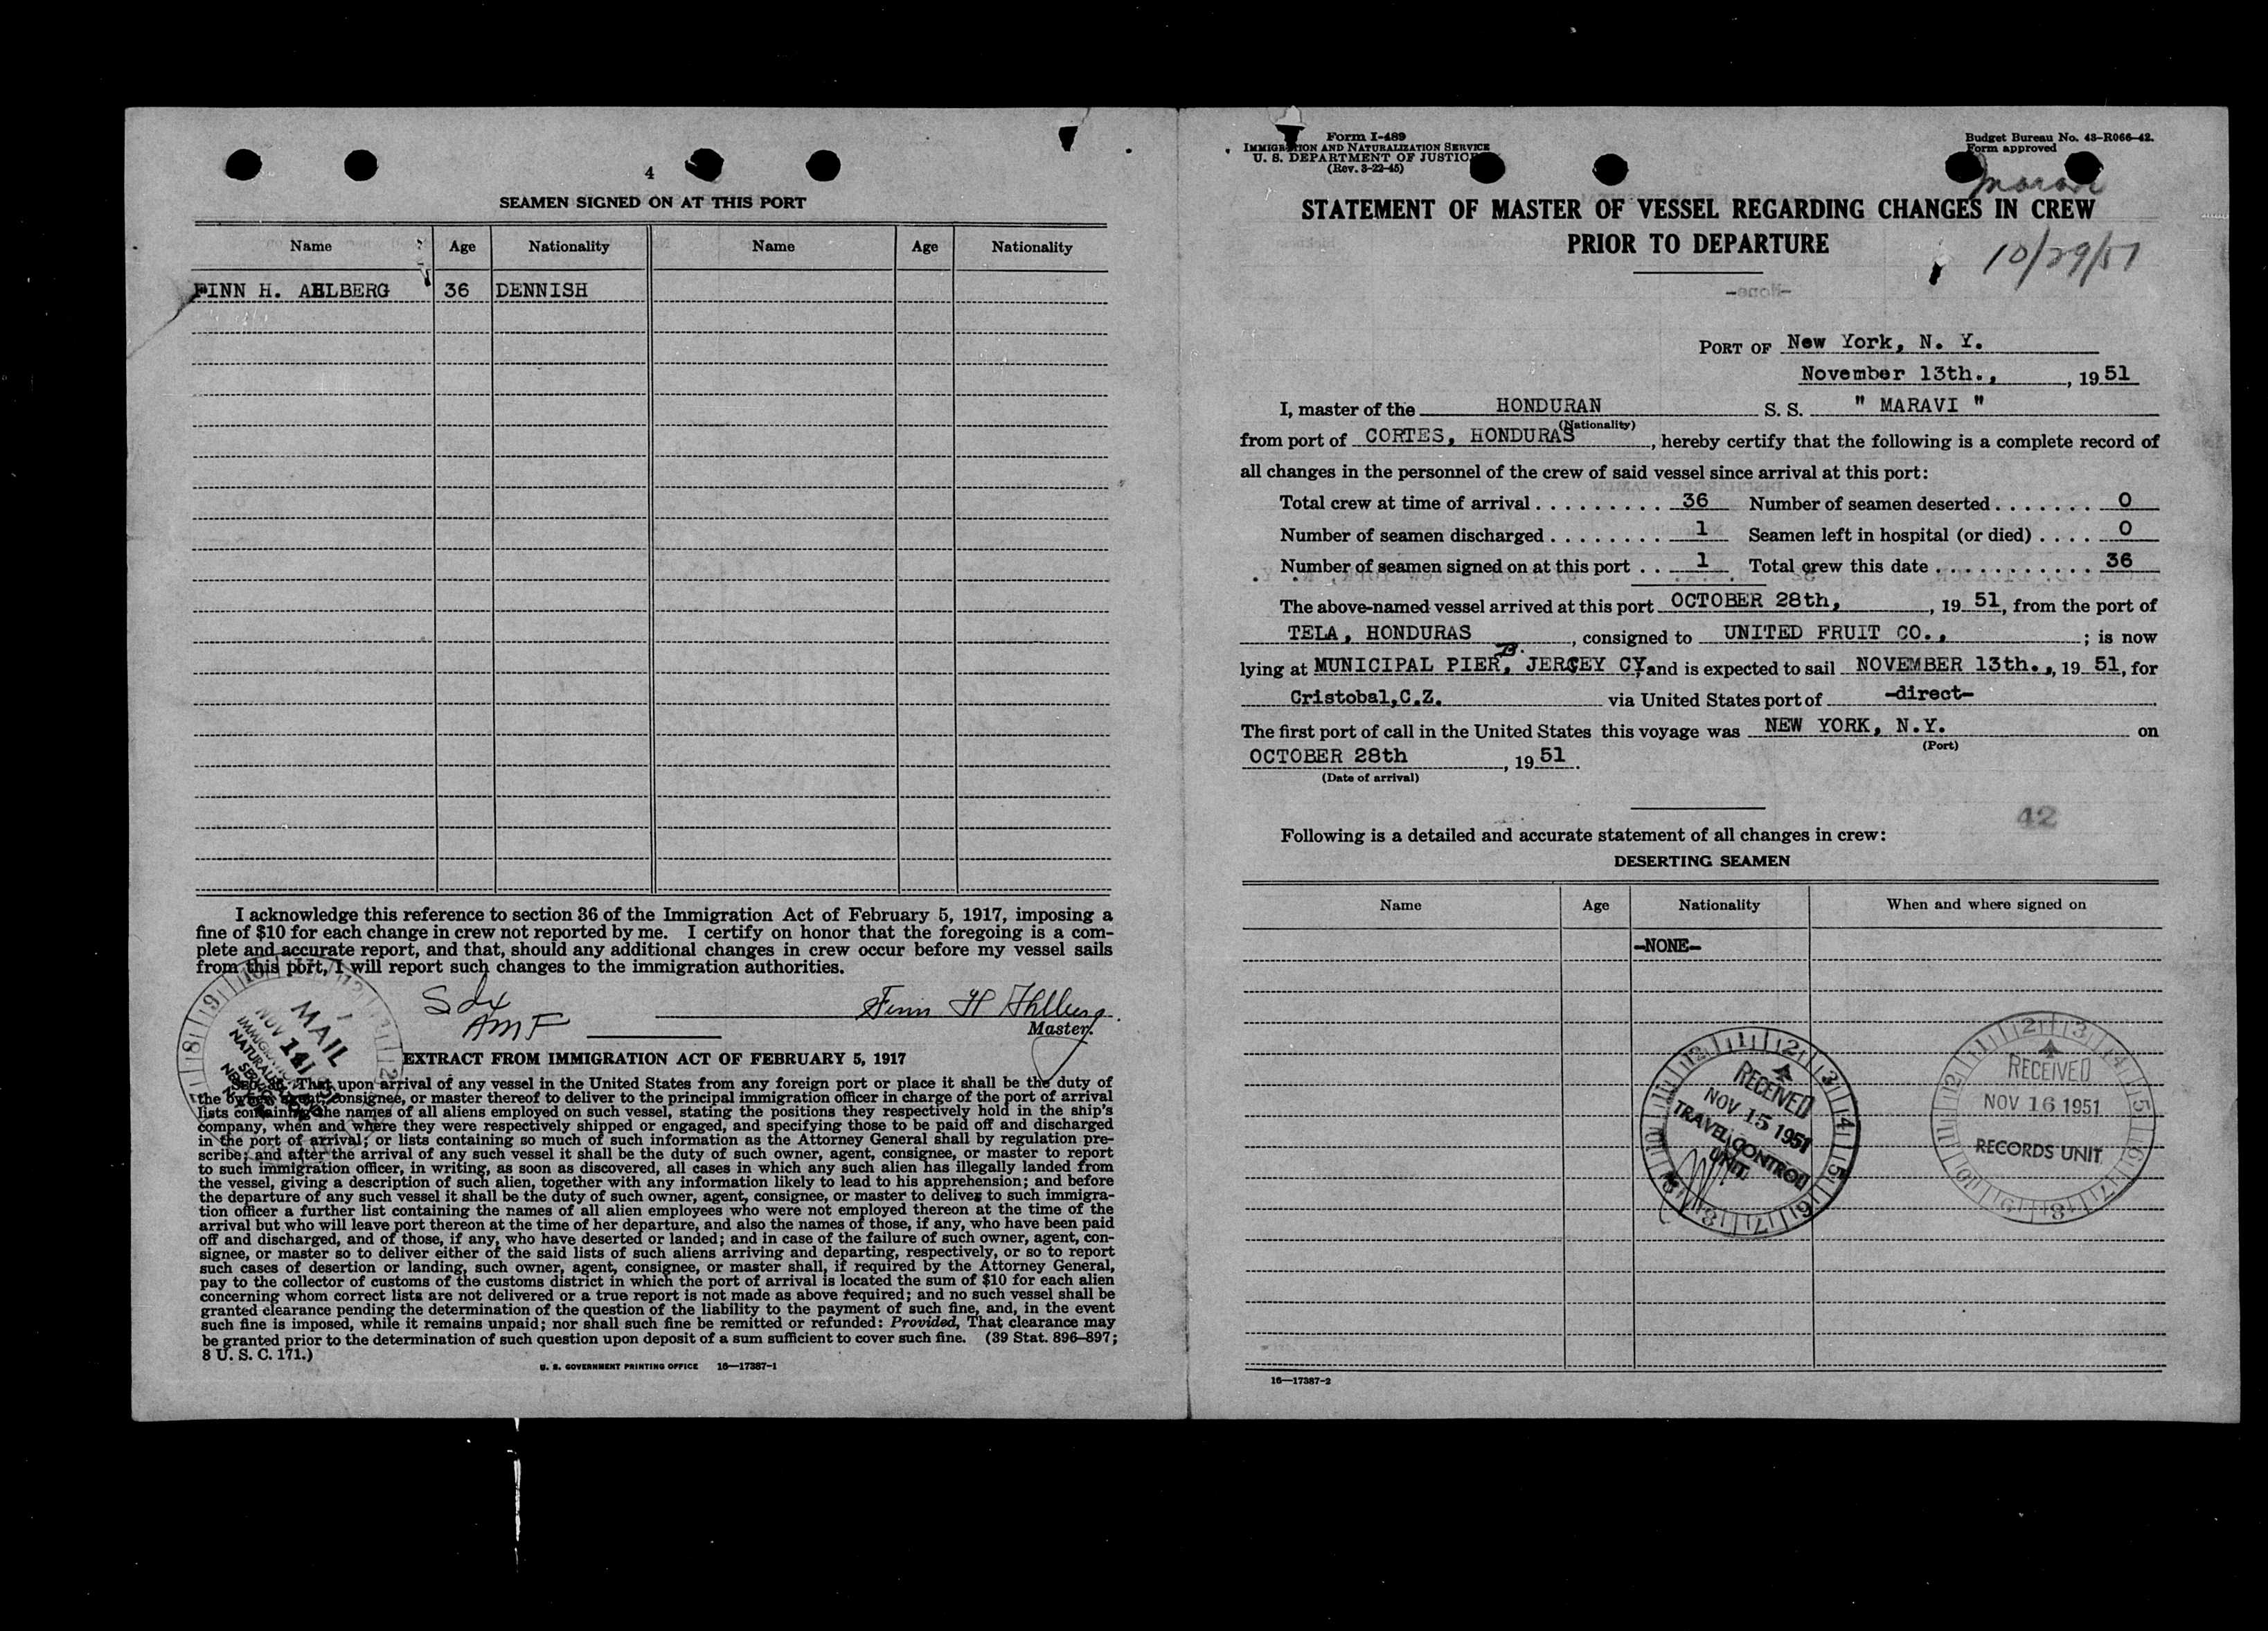 4
SEAMEN SIGNED ON AT THIS PORT
Name Age Nationality Name Age Nationality
FINN H. AHLBERG 36 DENNISH
I acknowledge this reference to section 36 of the Immigration Act of February 5, 1917, imposing a
fine of $10 for each change in crew not reported by me. I certify on honor that the foregoing is a com-
plete and accurate report, and that, should any additional changes in crew occur before my vessel sails
from this port, I will report such changes to the immigration authorities.
AMF
Finn H Ahlberg
Master.
MAIL
NOV 14
EXTRACT FROM IMMIGRATION ACT OF FEBRUARY 5, 1917
Sec. 36. That upon arrival of any vessel in the United States from any foreign port or place it shall be the duty of
the owner, agent, consignee, or master thereof to deliver to the principal immigration officer in charge of the port of arrival
lists containing the names of all aliens employed on such vessel, stating the positions they respectively hold in the ship's
company, when and where they were respectively shipped or engaged, and specifying those to be paid off and discharged
in the port of arrival; or lists containing so much of such information as the Attorney General shall by regulation pre-
scribe; and after the arrival of any such vessel it shall be the duty of such owner, agent, consignee, or master to report
to such immigration officer, in writing, as soon as discovered, all cases in which any such alien has illegally landed from
the vessel, giving a description of such alien, together with any information likely to lead to his apprehension; and before
the departure of any such vessel it shall be the duty of such owner, agent, consignee, or master to deliver to such immigra-
tion officer a further list containing the names of all alien employees who were not employed thereon at the time of the
arrival but who will leave port thereon at the time of her departure, and also the names of those, if any, who have been paid
off and discharged, and of those, if any, who have deserted or landed; and in case of the failure of such owner, agent, con-
signee, or master so to deliver either of the said lists of such aliens arriving and departing, respectively, or so to report
such cases of desertion or landing, such owner, agent, consignee, or master shall, if required by the Attorney General,
pay to the collector of customs of the customs district in which the port of arrival is located the sum of $10 for each alien
concerning whom correct lists are not delivered or a true report is not made as above required; and no such vessel shall be
granted clearance pending the determination of the question of the liability to the payment of such fine, and, in the event
such fine is imposed, while it remains unpaid; nor shall such fine be remitted or refunded: Provided, That clearance may
be granted prior to the determination of such question upon deposit of a sum sufficient to cover such fine. (39 Stat. 896-897;
8 U. S. C. 171.)
U. S. GOVERNMENT PRINTING OFFICE 16—17387-1
Form I-489
IMMIGRATION AND NATURALIZATION SERVICE
U. S. DEPARTMENT OF JUSTICE
(Rev. 3-22-45)
Budget Bureau No. 43-R066-42.
Form approved
Maravi
STATEMENT OF MASTER OF VESSEL REGARDING CHANGES IN CREW
PRIOR TO DEPARTURE
10/29/51
PORT OF New York, N. Y.
November 13th., , 19 51
I, master of the HONDURAN S. S. " MARAVI "
(Nationality)
from port of CORTES, HONDURAS , hereby certify that the following is a complete record of
all changes in the personnel of the crew of said vessel since arrival at this port:
Total crew at time of arrival . . . . . . . . . 36 Number of seamen deserted . . . . . . . 0
Number of seamen discharged . . . . . . . . 1 Seamen left in hospital (or died) . . . . 0
Number of seamen signed on at this port . . 1 Total crew this date . . . . . . . . . . . 36
The above-named vessel arrived at this port OCTOBER 28th, , 19 51, from the port of
TELA, HONDURAS , consigned to UNITED FRUIT CO., ; is now
lying at MUNICIPAL PIER B. , JERSEY CY, and is expected to sail NOVEMBER 13th., 19 51, for
Cristobal,C.Z. via United States port of -direct-
The first port of call in the United States this voyage was NEW YORK, N.Y. on
(Port)
OCTOBER 28th , 19 51.
(Date of arrival)
42
Following is a detailed and accurate statement of all changes in crew:
DESERTING SEAMEN
Name Age Nationality When and where signed on
-NONE-
RECEIVED
NOV 15 1951
TRAVEL CONTROL
UNIT
RECEIVED
NOV 16 1951
RECORDS UNIT
16—17387-2